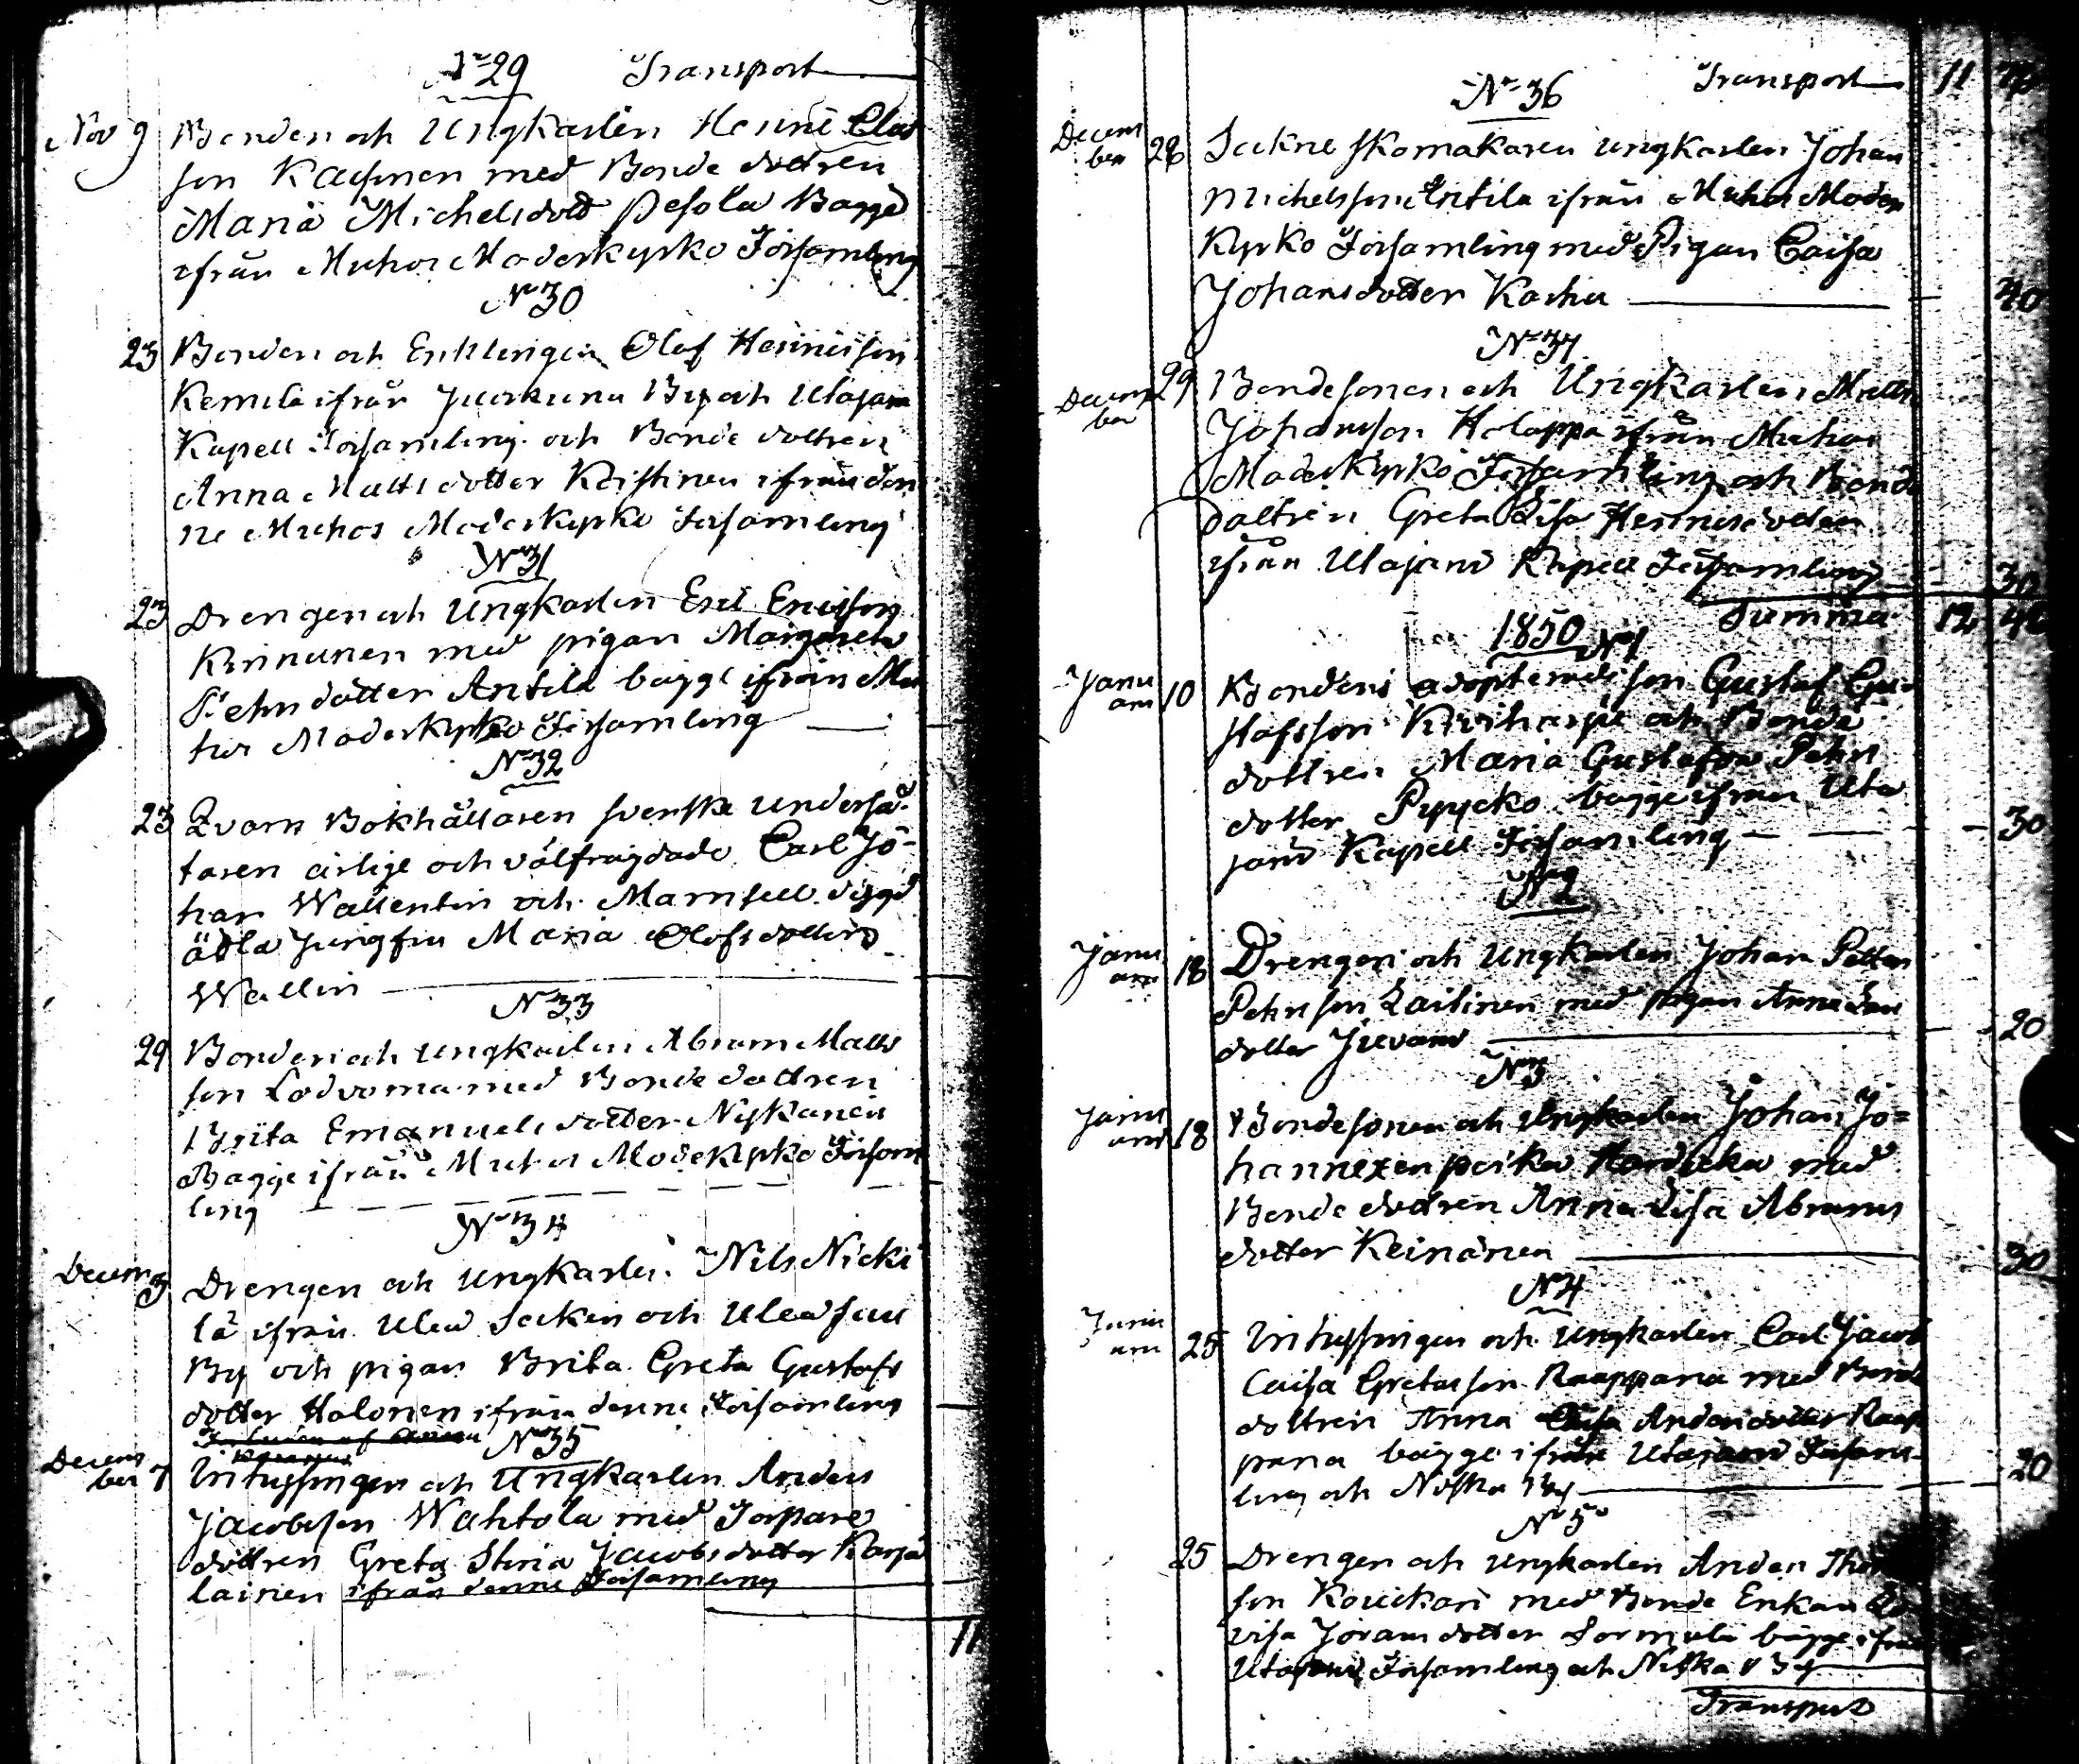 N 29 Transport
Nov 9 Bonden och Ungkarlen Henric Clas
son med Bonde dottren
Maria Michelsdott Pesola Bägge
ifrån Muhos Moderkyrko Församling
N 30
23 Bonden och Enklingen Olof Henricsson
Kemila ifrån Juorkuna By och Utajärvi
Kapell Församling och Bonde dottren
Anna Matts dotter Keistinen ifrån den
ne Muhos Moderkyrko Församling
N 31
23 Drengen och Ungkarlen Eric Ericsson
Kinnunen med pigan Margareta
Pehrsdotter Antila bägge ifrån Mu
hos Moderkyrko Församling
N 32
23 Qvarn Bokhållaren Svenske underså-
taren ärlige och välfrägdade Carl Jo-
han Wallentin och Mamsell dygd
ädla Jungfru Maria Olofsdotter
Wallin
N 33
29 Bonden och ungkarlen Abram Matts
son Lodvoma med Bonde dottren
Brita Emanuels dotter Nyskanen
Bägge ifrån Muhos Moderkyrko Försam
ling
N 34
Decem 3 Drengen och Ungkarlen Nils Nicki
lä ifrån Uleå Socken och Uleåsuu
By och pigan Brita Greta Gustafs
dotter Halonen ifrån denne Församling
N 35
Decem
ber 7 Inhyssingen och Ungkarlen Anders
Jacobsson Wahtola med Torpare
dottren Greta Stina Jacobsdotter Karja
lainen ifrån denne Församling
11
N 36 Transport 11
Decem
ber 28 Sockne Skomakaren ungkarlen Johan
Michelsson Antila ifrån Muhos Moder
Kyrko Församling med Pigan Caisa
Johansdotter Karhu 40
N 37
Decem
ber 29 Bondesonen och Ungkarlen Matts
Johansson Holappa ifrån Muhos
Moderkyrko Församling och Bonde
dottren Greta Lisa Henricsdotter
ifrån Utajärvi Kapell Församling 30
Summa 12 40
1850 N 1
Janu
ari 10 Bondens adopterade son Gustaf Gu-
stafsson Kiviharju och Bonde
dottren Maria Gustafva Pehrs
dotter Pyycko bägge ifrån Uta
järvi Kapell Församling 30
N 2
Janu
ari 18 Drengen och Ungkarlen Johan Petter
Pehrsson Laitinen med pigan Anna Lars
dotter 20
N 3
Janu
ari 18 Bondesonen och Ungkarlen Johan Jo=
hannexen poika med
Bonde dottren Anna Lisa Abrams
dotter Keinänen 30
N 4
Janu
ari 25 Inhyssingen och Ungkarlen Carl Jacob
Caisa Gretasson Raappana med Bonde
dottren Anna Caisa Anders dotter Raap
pana bägge ifrån Utajärvi Försam-
ling och Niska By 20
N 5
25 Drengen och Ungkarlen Anders
son Kouckari med Bonde Enkan
visa Jörans dotter Sormula bägge ifrån
Utajärvi Församling och Niska By
Transport